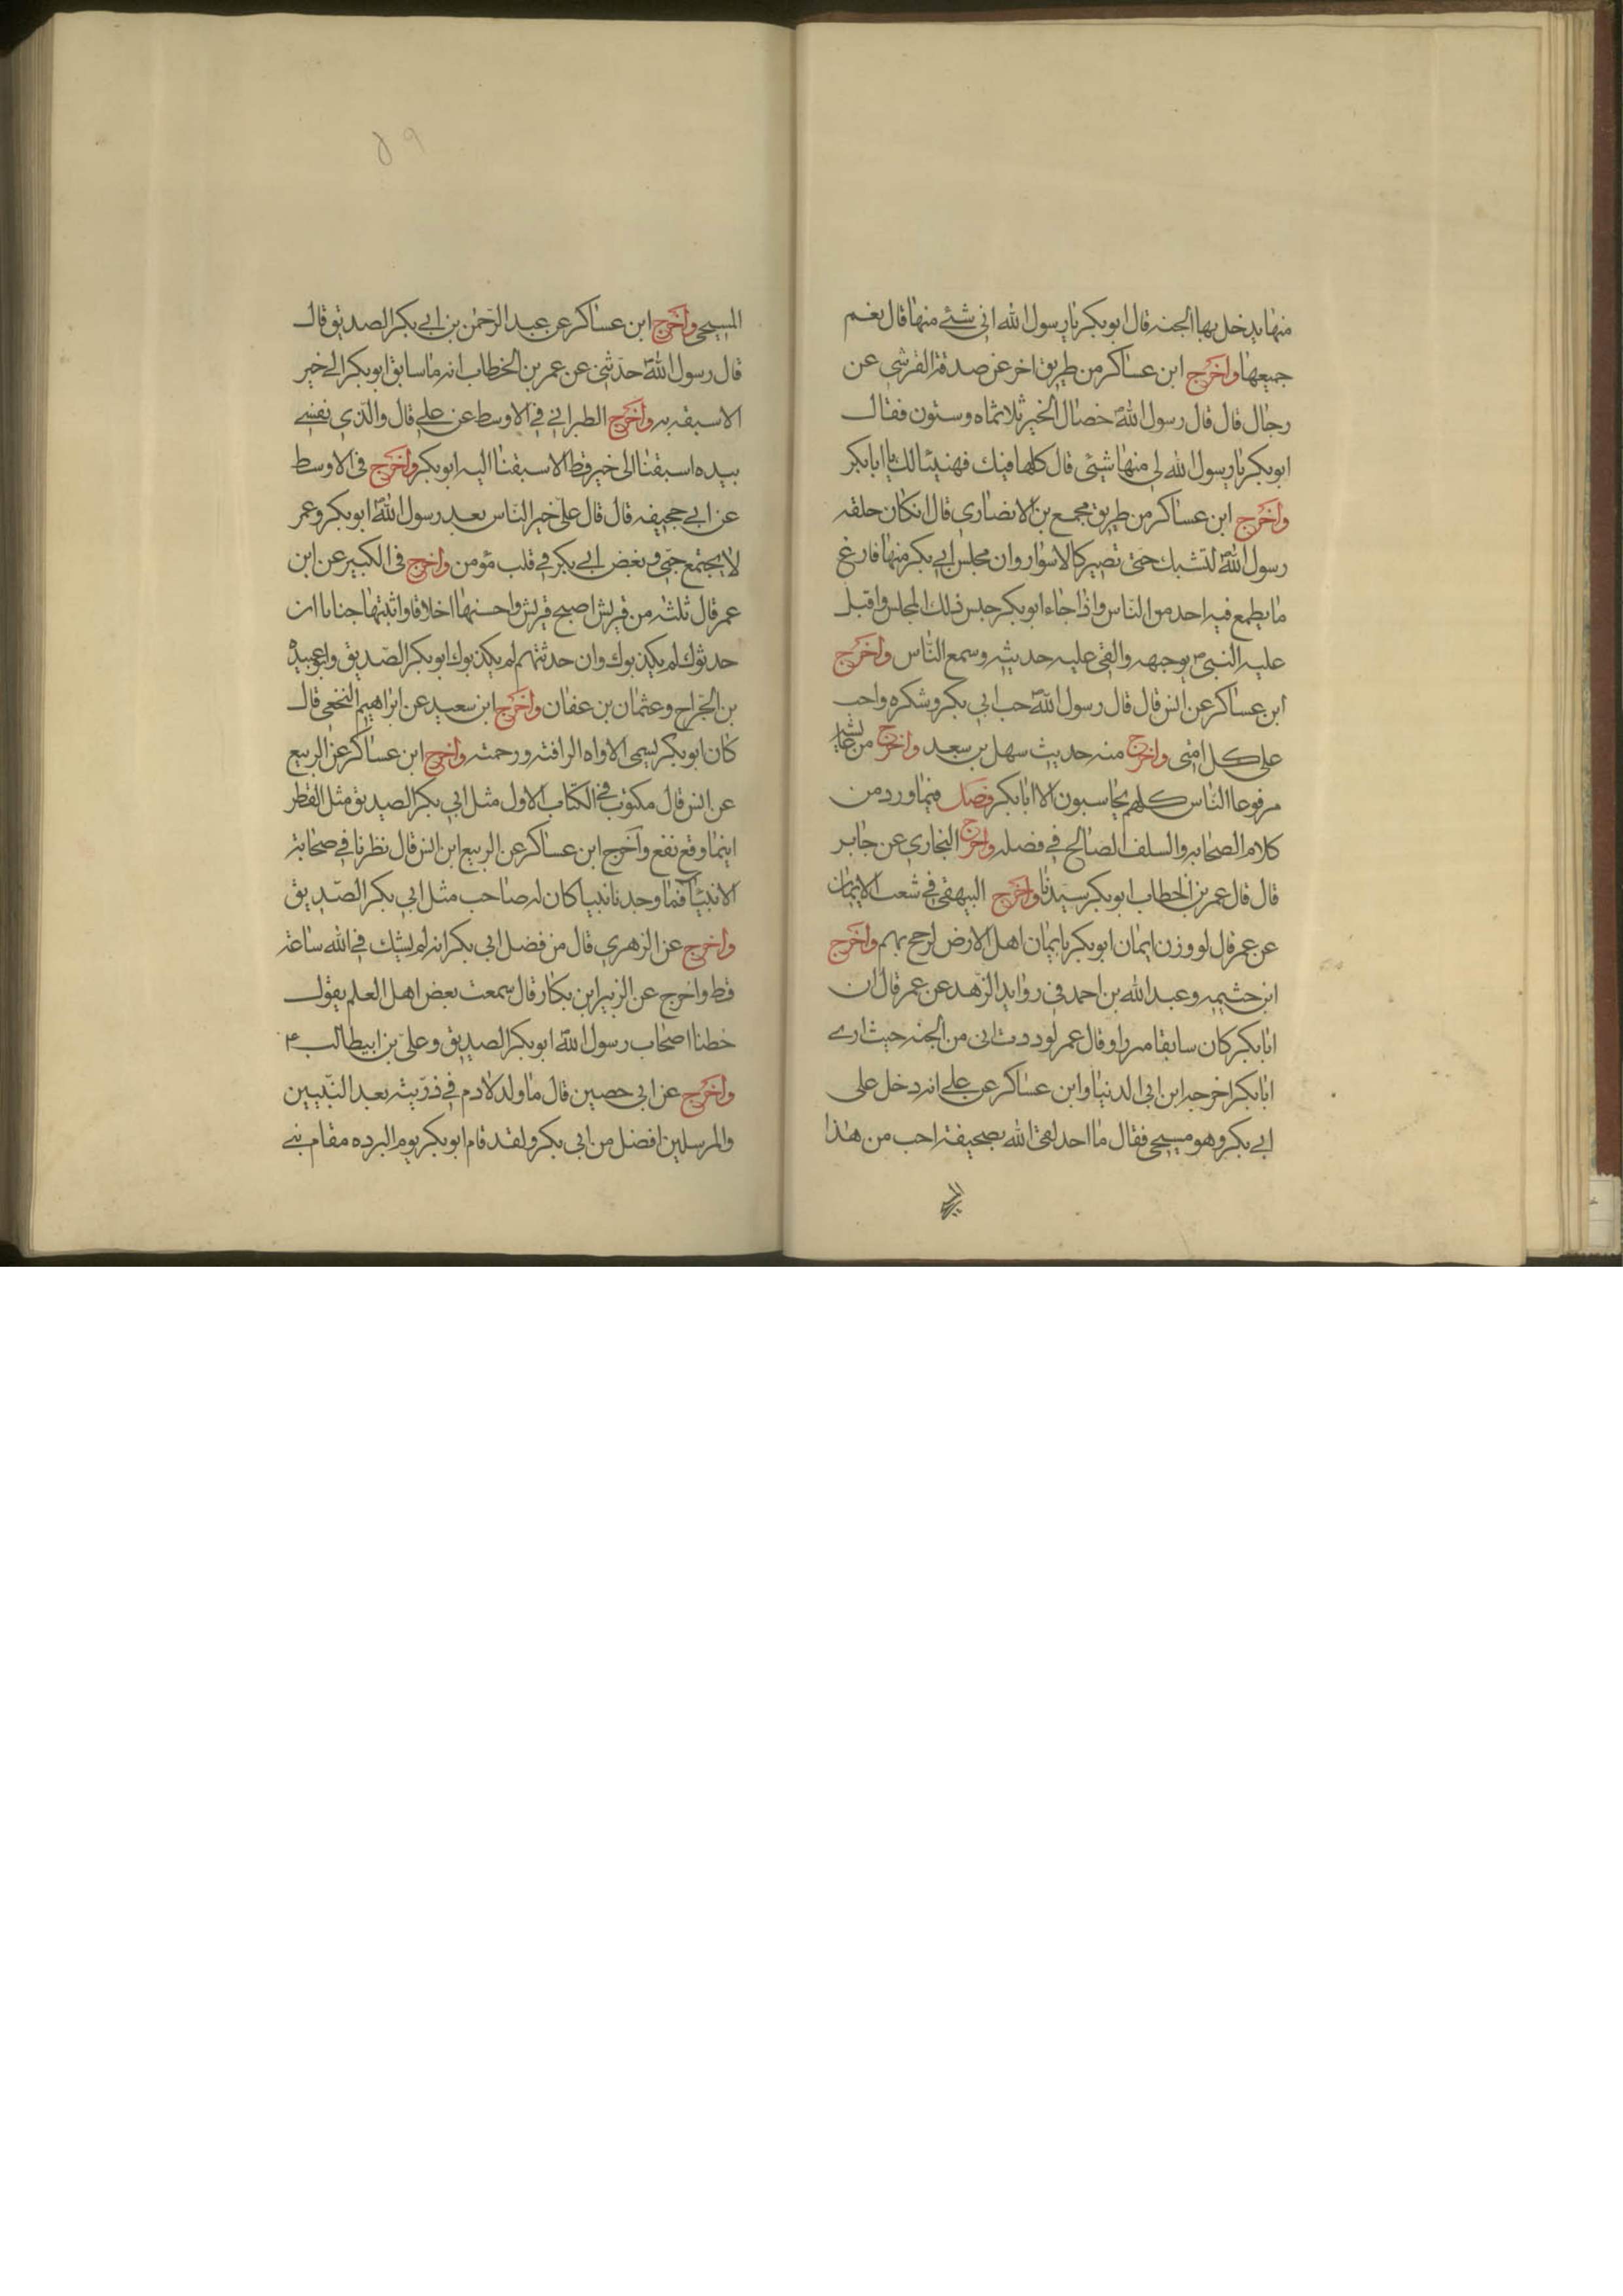 منها يدخل بها الجنه قال ابو بكر يا رسول الله اني شئے منها قال نعم
جميعها واخرج ابن عساكر من طريق اخر عن صدقة القرشي عن
رجال قال قال رسول الله خصال الخير ثلاثماه وستون فقال
ابو بكر يا رسول الله لي منها شيئ قال كلها فيك فهنيئا لك يا ابا بكر
واخرج ابن عساكر من طريق مجمع بن الانصاري قال انكان حلقه
رسول الله لتشبك حتى تصير كالاسوار وان مجلس ابي بكر منها فارغ
ما يطمع فيه احد من الناس واذا جاء ابو بكر جلس ذلك المجلس واقبل
عليه النبي ص بوجهه والقى عليه حديثه وسمع الناس واخرج
ابن عساكر عن انس قال قال رسول الله حب ابي بكر وشكره واجب
على كل امتي واخرج منه حديث سهل بن سعد واخرج من عايشه
مرفوعا الناس كلهم يحاسبون الا ابا بكر فصل فيما ورد من
كلام الصحابه والسلف الصالح في فضله واخرج البخاري عن جابر
قال قال عمر بن الخطاب ابو بكر سيدنا واخرج البيهقي في شعب الايمان
عن عمر قال لو وزن ايمان ابو بكر بايمان اهل الارض لرجح بهم واخرج
ابن حثيمه وعبد الله بن احمد في روايد الزهد عن عمر قال ان
ابا بكر كان سابقا مبرزا وقال عمر لوددت اني من الجنه حيث ارى
ابا بكر اخرجه ابن ابي الدنيا وابن عساكر عن علے انه دخل على
ابي بكر وهو مسجى فقال ما احد لقى الله بصحيفة احب من هذا
المسجى
المسجى واخرج ابن عساكر عن عبد الرحمن بن ابي بكر الصديق قال
قال رسول الله حدثني عن عمر بن الخطاب انه ما سابق ابو بكر الے خير
الا سبقه به واخرج الطبراني في الاوسط عن علے قال والذي نفسے
بيده اسبقنا الى خير قط الا سبقنا اليه ابو بكر واخرج في الاوسط
عن ابي جحيفه قال قال علي خير الناس بعد رسول الله ابو بكر وعمر
لا يجتمع حبي وبغض ابي بكر في قلب مؤمن واخرج في الكبير عن ابن
عمر قال ثلثه من قريش اصبح قريش واحسنها اخلاقا واثبتها جنانا ان
حدثوك لم يكذبوك وان حدثتهم لم يكذبوك ابو بكر الصديق وابو عبيده
بن الجراح وعثمان بن عفان واخرج ابن سعيد عن ابراهيم النخعي قال
كان ابو بكر يسمى الاواه الرافته ورحمته واخرج ابن عساكر عن الربيع
عن انس قال مكتوب في الكتاب الاول مثل ابي بكر الصديق مثل القطر
اينما وقع نفع واخرج ابن عساكر عن الربيع ابن انس قال نظرنا في صحابة
الانبيا فما وجدنا نبيا كان له صاحب مثل ابي بكر الصديق
واخرج عن الزهري قال من فضل ابي بكر انه لم يشك في الله ساعة
قط واخرج عن الزبير ابن بكار قال سمعت بعض اهل العلم يقول
خطنا اصحاب رسول الله ابو بكر الصديق وعلي بن ابيطالب ع
واخرج عن ابي حصين قال ما ولد لادم في ذريته بعد النبيين
والمرسلين افضل من ابي بكر ولقد قام ابو بكر يوم البرده مقام بنے